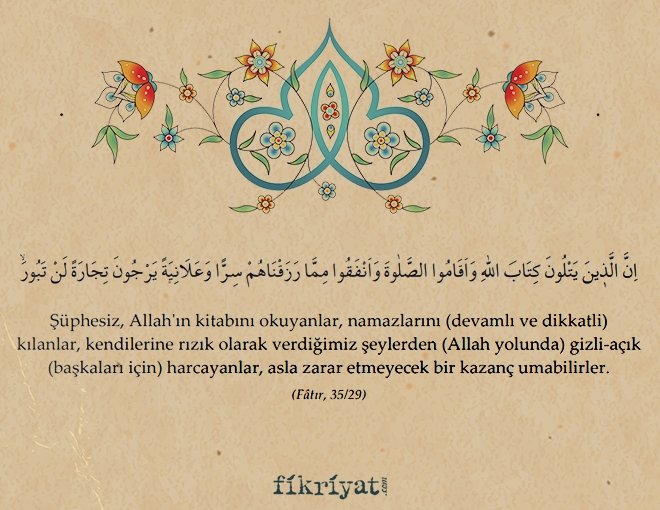 اِنَّ الَّذ۪ينَ يَتْلُونَ كِتَابَ اللّٰهِ وَاَقَامُوا الصَّلٰوةَ وَاَنْفَقُوا مِمَّا رَزَقْنَاهُمْ سِرًّا وَعَلَانِيَةً يَرْجُونَ تِجَارَةً لَنْ تَبُورَۙ
Şüphesiz, Allah'ın kitabını okuyanlar, namazlarını (devamlı ve dikkatli)
kılanlar, kendilerine rızık olarak verdiğimiz şeylerden (Allah yolunda) gizli-açık
(başkaları için) harcayanlar, asla zarar etmeyecek bir kazanç umabilirler.
(Fâtır, 35/29)
fikriyat.com